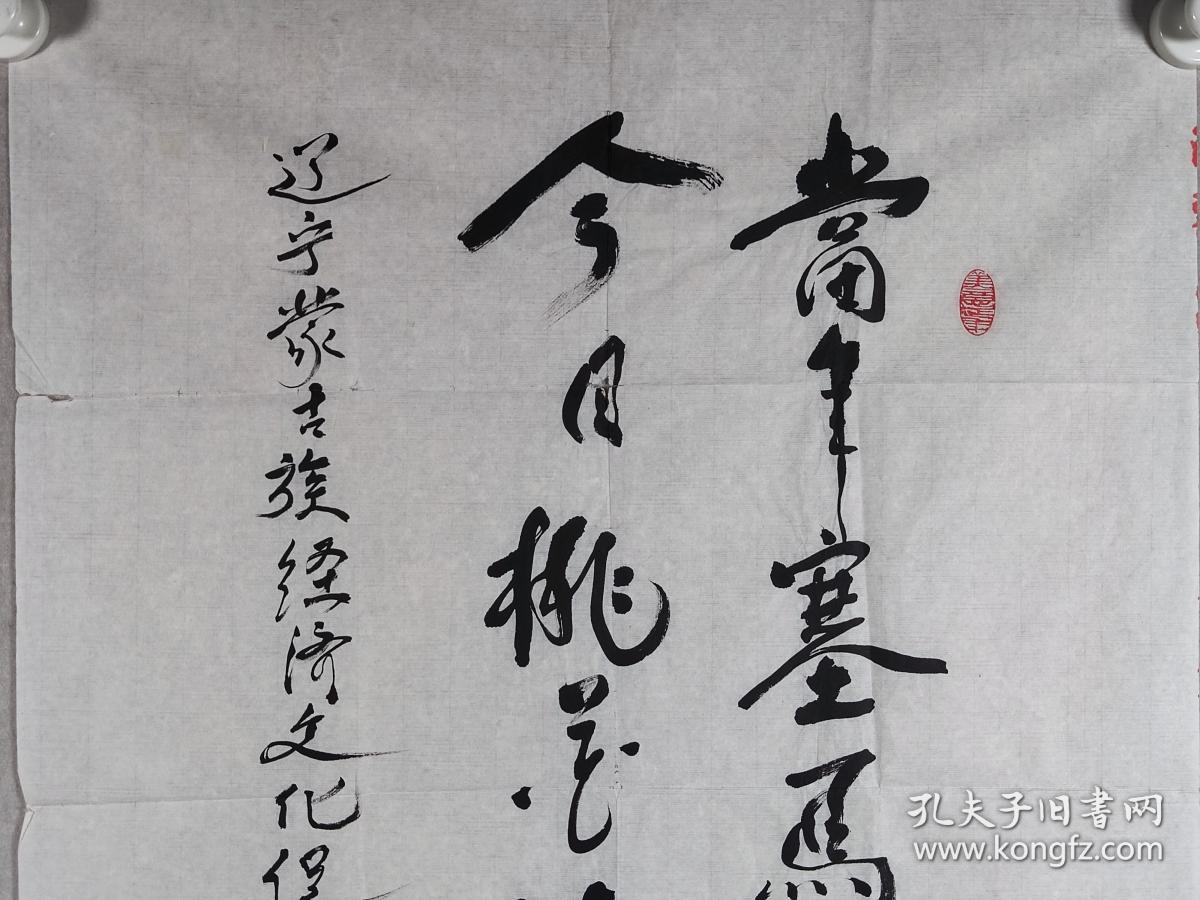 當年塞馬
今日桃花
辽宁蒙古族经济文化促
孔夫子旧书网
www.kongfz.com